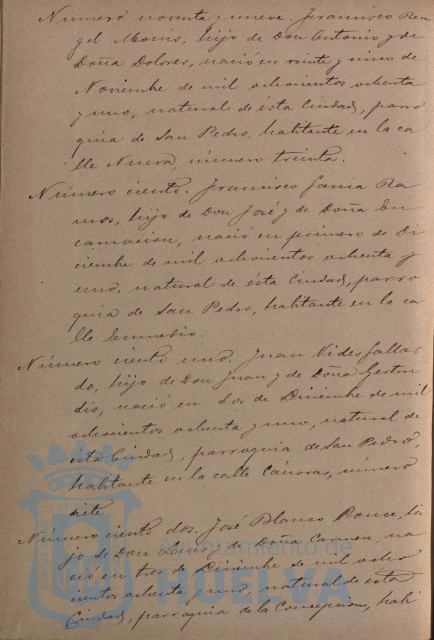 Número noventa y nueve. Francisco Ran
gel Monis, hijo de Don Antonio y de
Doña Dolores, nació en veinte y cinco de
Noviembre de mil ochocientos ochenta
y uno, natural de esta Ciudad, parro
quia de San Pedro, habitante en la ca
lle Nueva, número treinta.
Número ciento. Francisco Ra
mos, hijo de Don José y de Doña En
carnacion, nació en primero de Di
ciembre de mil ochocientos ochenta y
uno, natural de ésta Ciudad, parro
quia de San Pedro, habitante en la ca
lle Enmedio.
Número ciento uno. Juan Vides Galla
do, hijo de Don Juan y de Doña Gertru
dis, nació en dos de Diciembre de mil
ochocientos ochenta y uno, natural de
esta Ciudad, parroquia de San Pedro,
habitante en la calle Cánovas, número
siete
Número ciento dos. José Blanco Ponce, hi
jo de Don Luis y de Doña Carmen, na
ció en tres de Diciembre de mil ocho
cientos ochenta y uno, natural de esta
Ciudad, parroquia de la Concepcion, habi
Ayuntamiento de
HUELVA